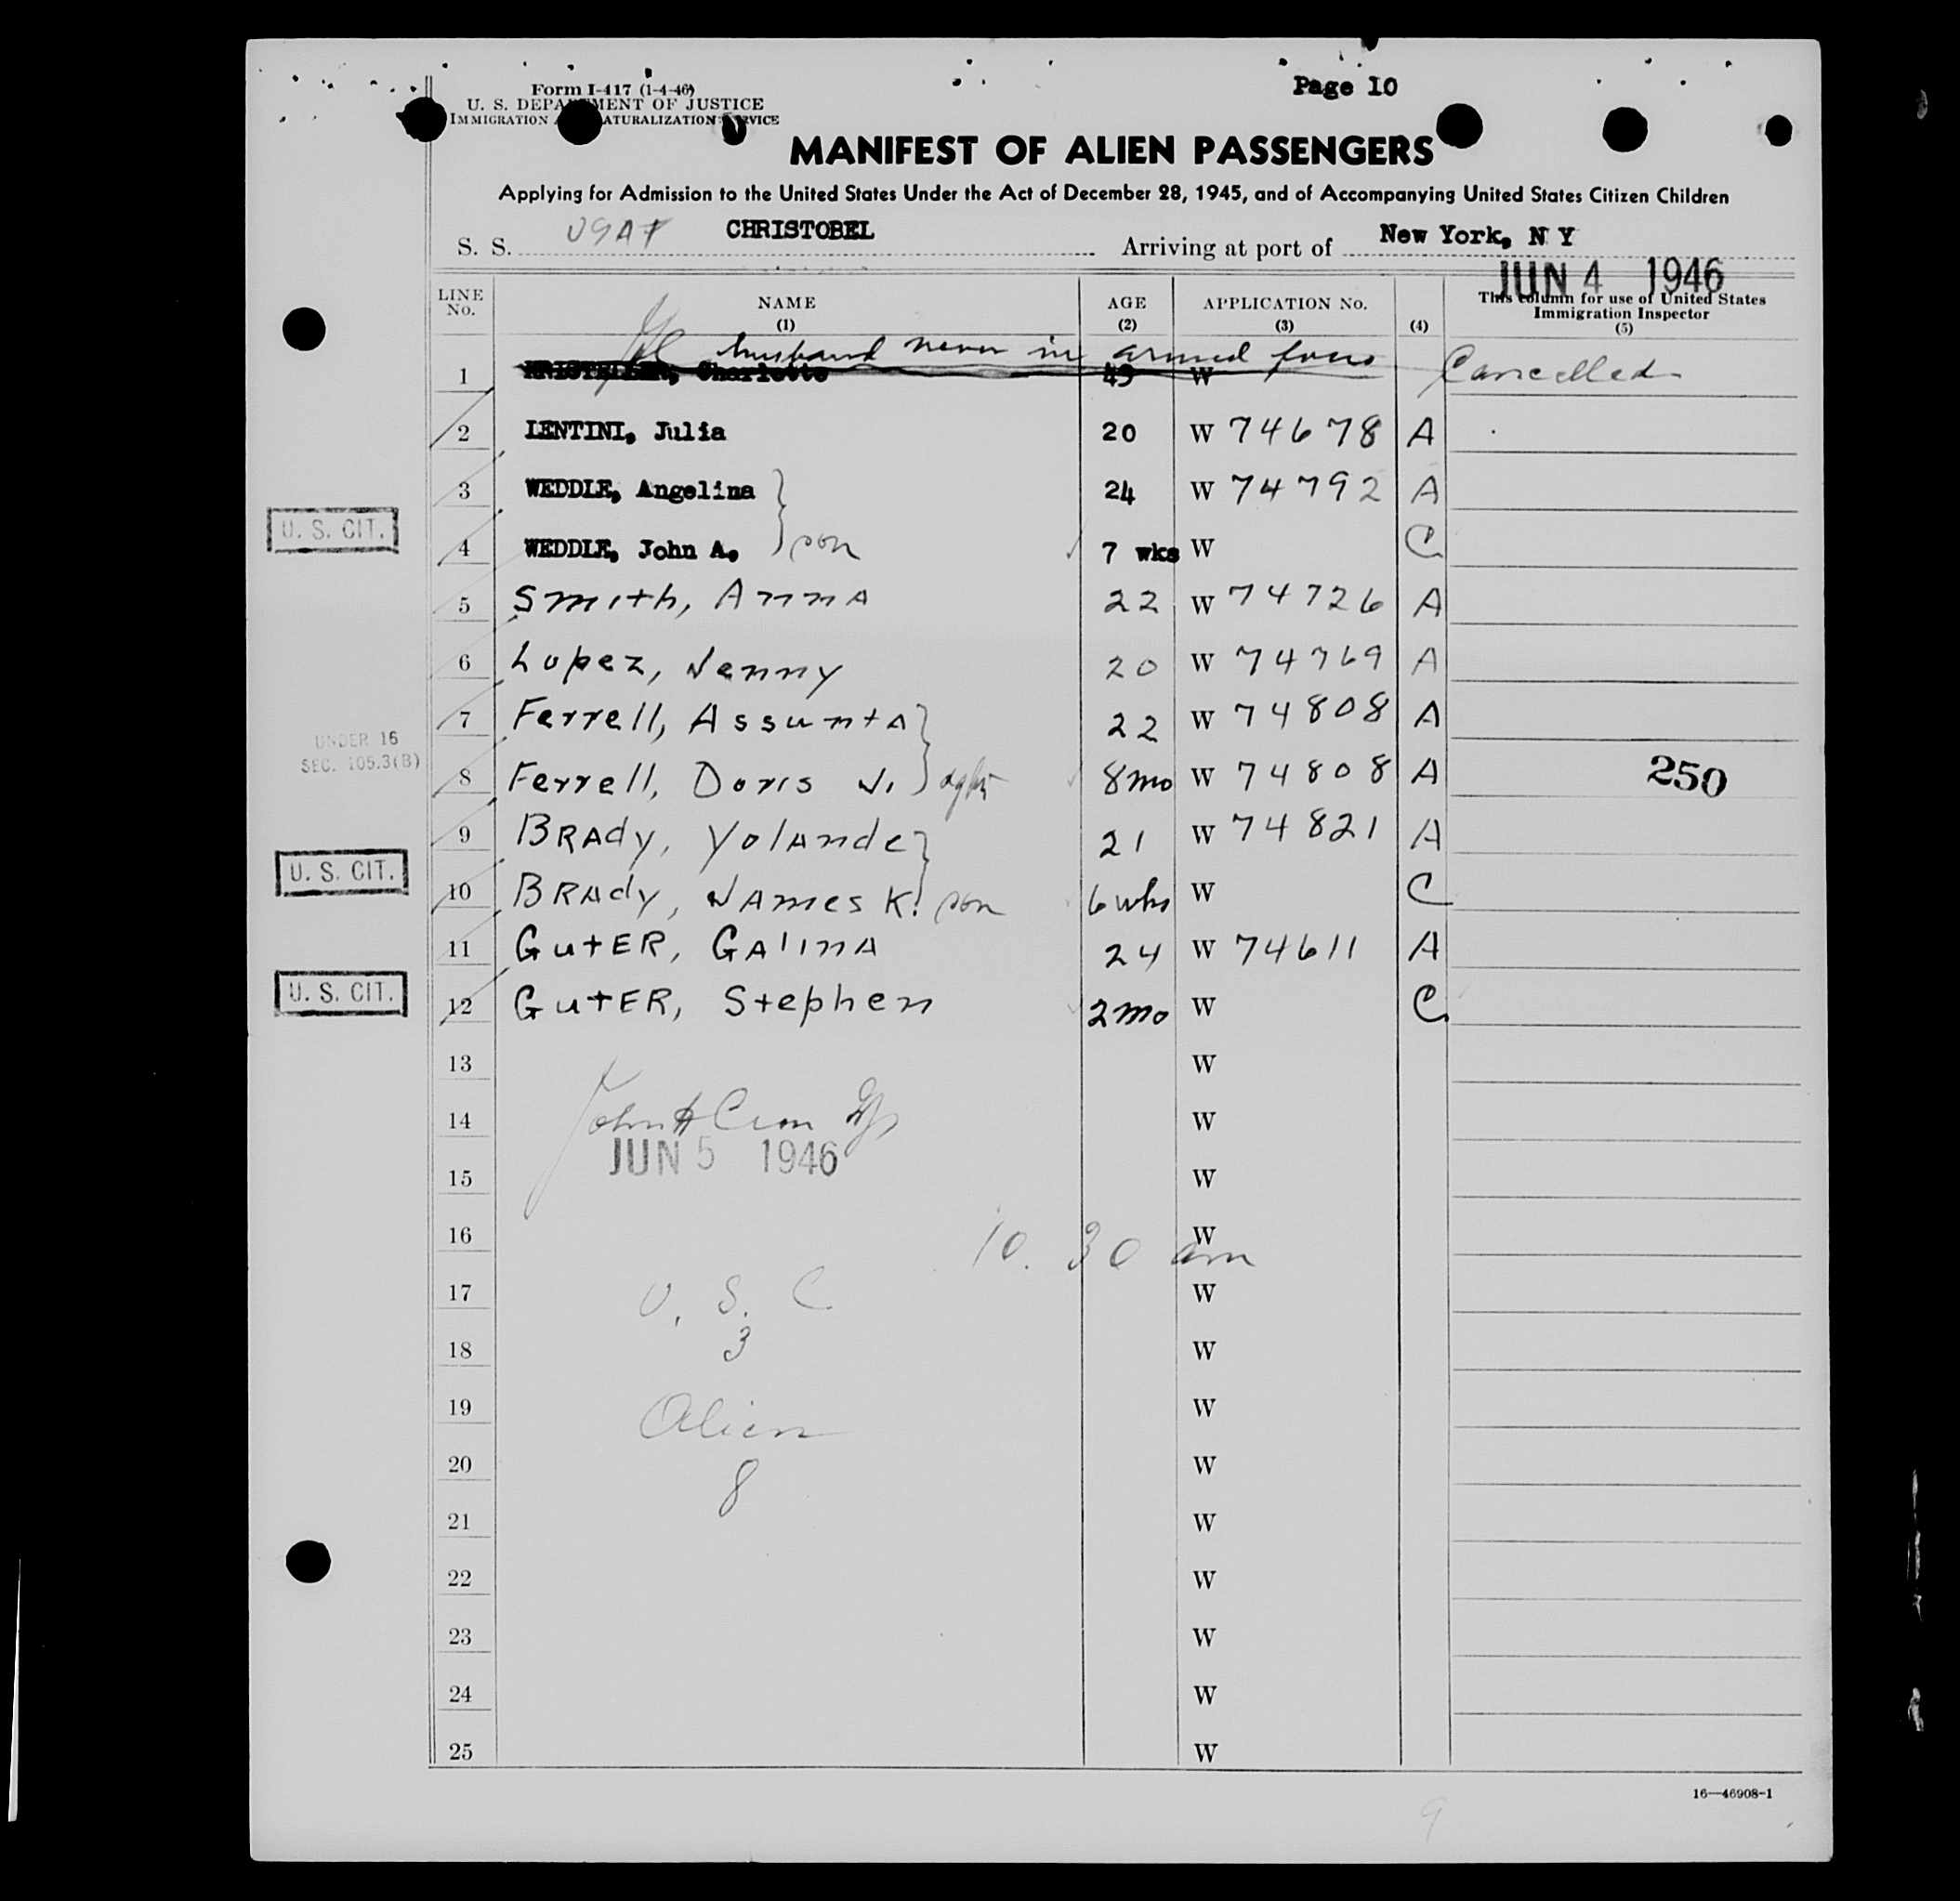 Page 10
Form I-417 (1-4-46)
U. S. DEPARTMENT OF JUSTICE
IMMIGRATION NATURALIZATION SERVICE
MANIFEST OF ALIEN PASSENGERS
Applying for Admission to the United States Under the Act of December 28, 1945, and of Accompanying United States Citizen Children
S. S. USAT CHRISTOBEL Arriving at port of New York, N Y
JUN 4 1946
LINE No. NAME (1) AGE (2) APPLICATION No. (3) (4) This column for use of United States Immigration Inspector (5)
husband never in armed forces
1 Charlotte 49 W Cancelled
2 LENTINI, Julia 20 W 74678 A
3 WEDDLE, Angelina 24 W 74792 A
U. S. CIT. 4 WEDDLE, John A. son 7 wks W C
5 Smith, Anna 22 W 74726 A
6 Lopez, Jenny 20 W 74769 A
7 Ferrell, Assunta 22 W 74808 A
UNDER 16
SEC. 105.3(B)
8 Ferrell, Doris J. 8mo W 74808 A 250
9 BRAdy, Yolande 21 W 74821 A
U. S. CIT. 10 BRAdy, JAmes K. son 6 wks W C
11 GutER, GAlinA 24 W 74611 A
U. S. CIT. 12 GutER, Stephen 2mo W C
13 W
14 John H W
JUN 5 1946
15 W
16 10.30 am W
17 U. S. C W
18 3 W
19 Alien W
20 8 W
21 W
22 W
23 W
24 W
25 W
16—46908-1
9